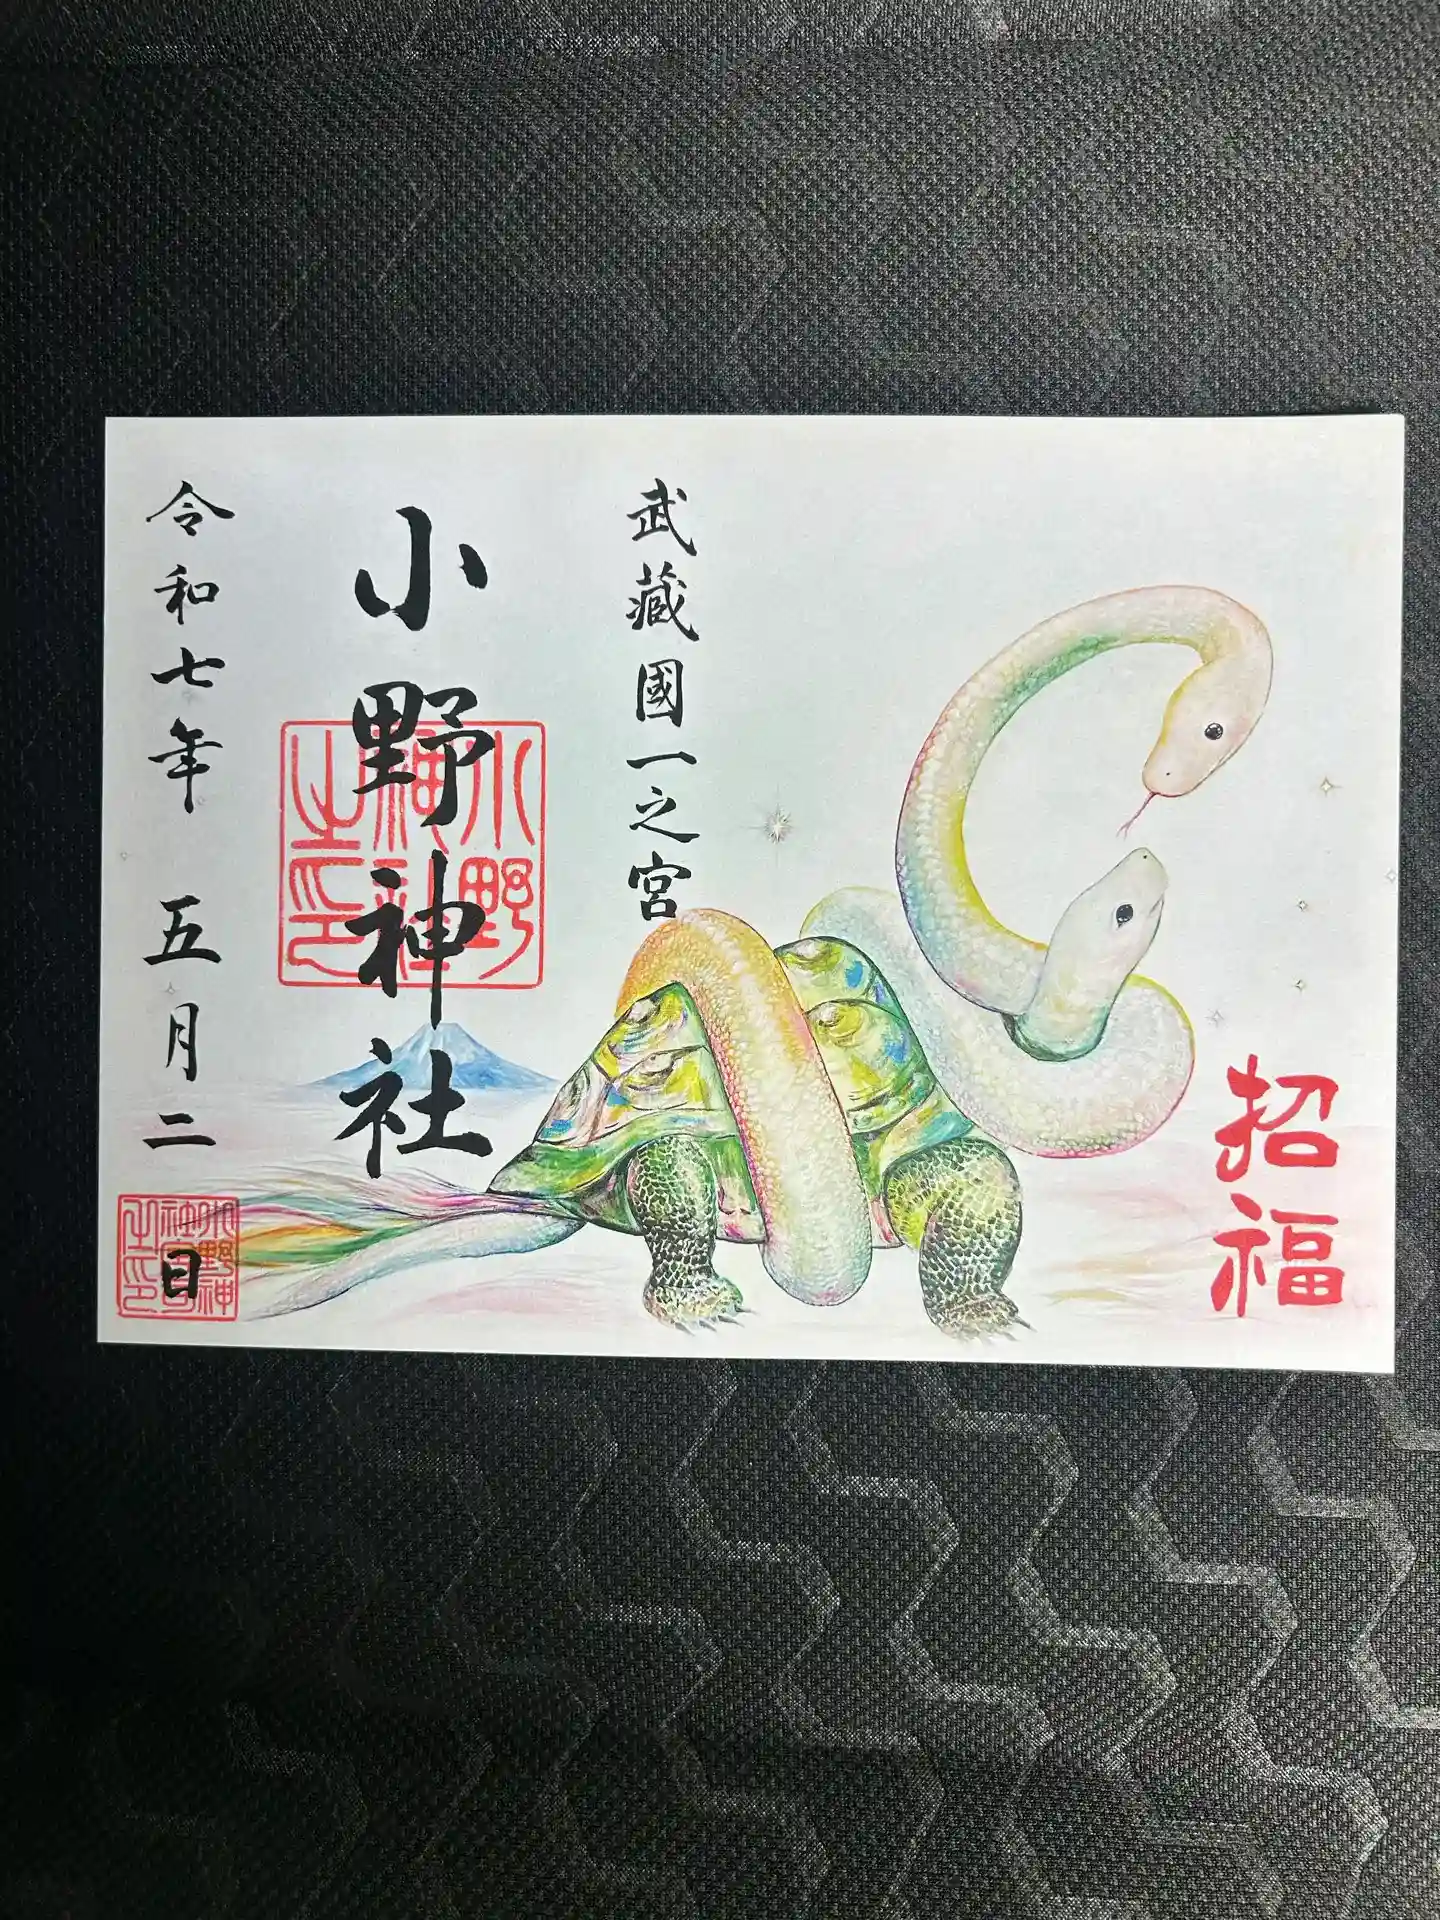 招福
武蔵國一之宮
小野神社
小野神社之印
令和七年 五月二日
小野神社宮之印